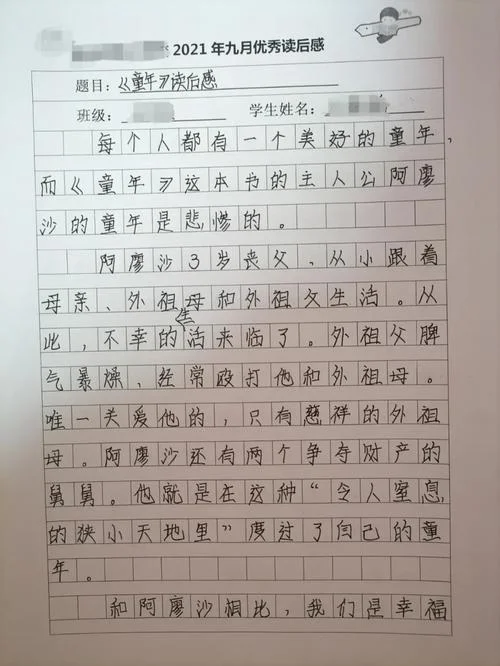 2021年九月优秀读后感
题目：《童年》读后感
班级： 学生姓名：
每个人都有一个美好的童年，
而《童年》这本书的主人公阿廖
沙的童年是悲惨的。
阿廖沙3岁丧父，从小跟着
母亲、外祖母和外祖父生活。从
此，不幸的生活来临了。外祖父脾
气暴燥，经常殴打他和外祖母。
唯一关爱他的，只有慈祥的外祖
母。阿廖沙还有两个争夺财产的
舅舅。他就是在这种“令人窒息
的狭小天地里”度过了自己的童
年。
和阿廖沙相比，我们是幸福